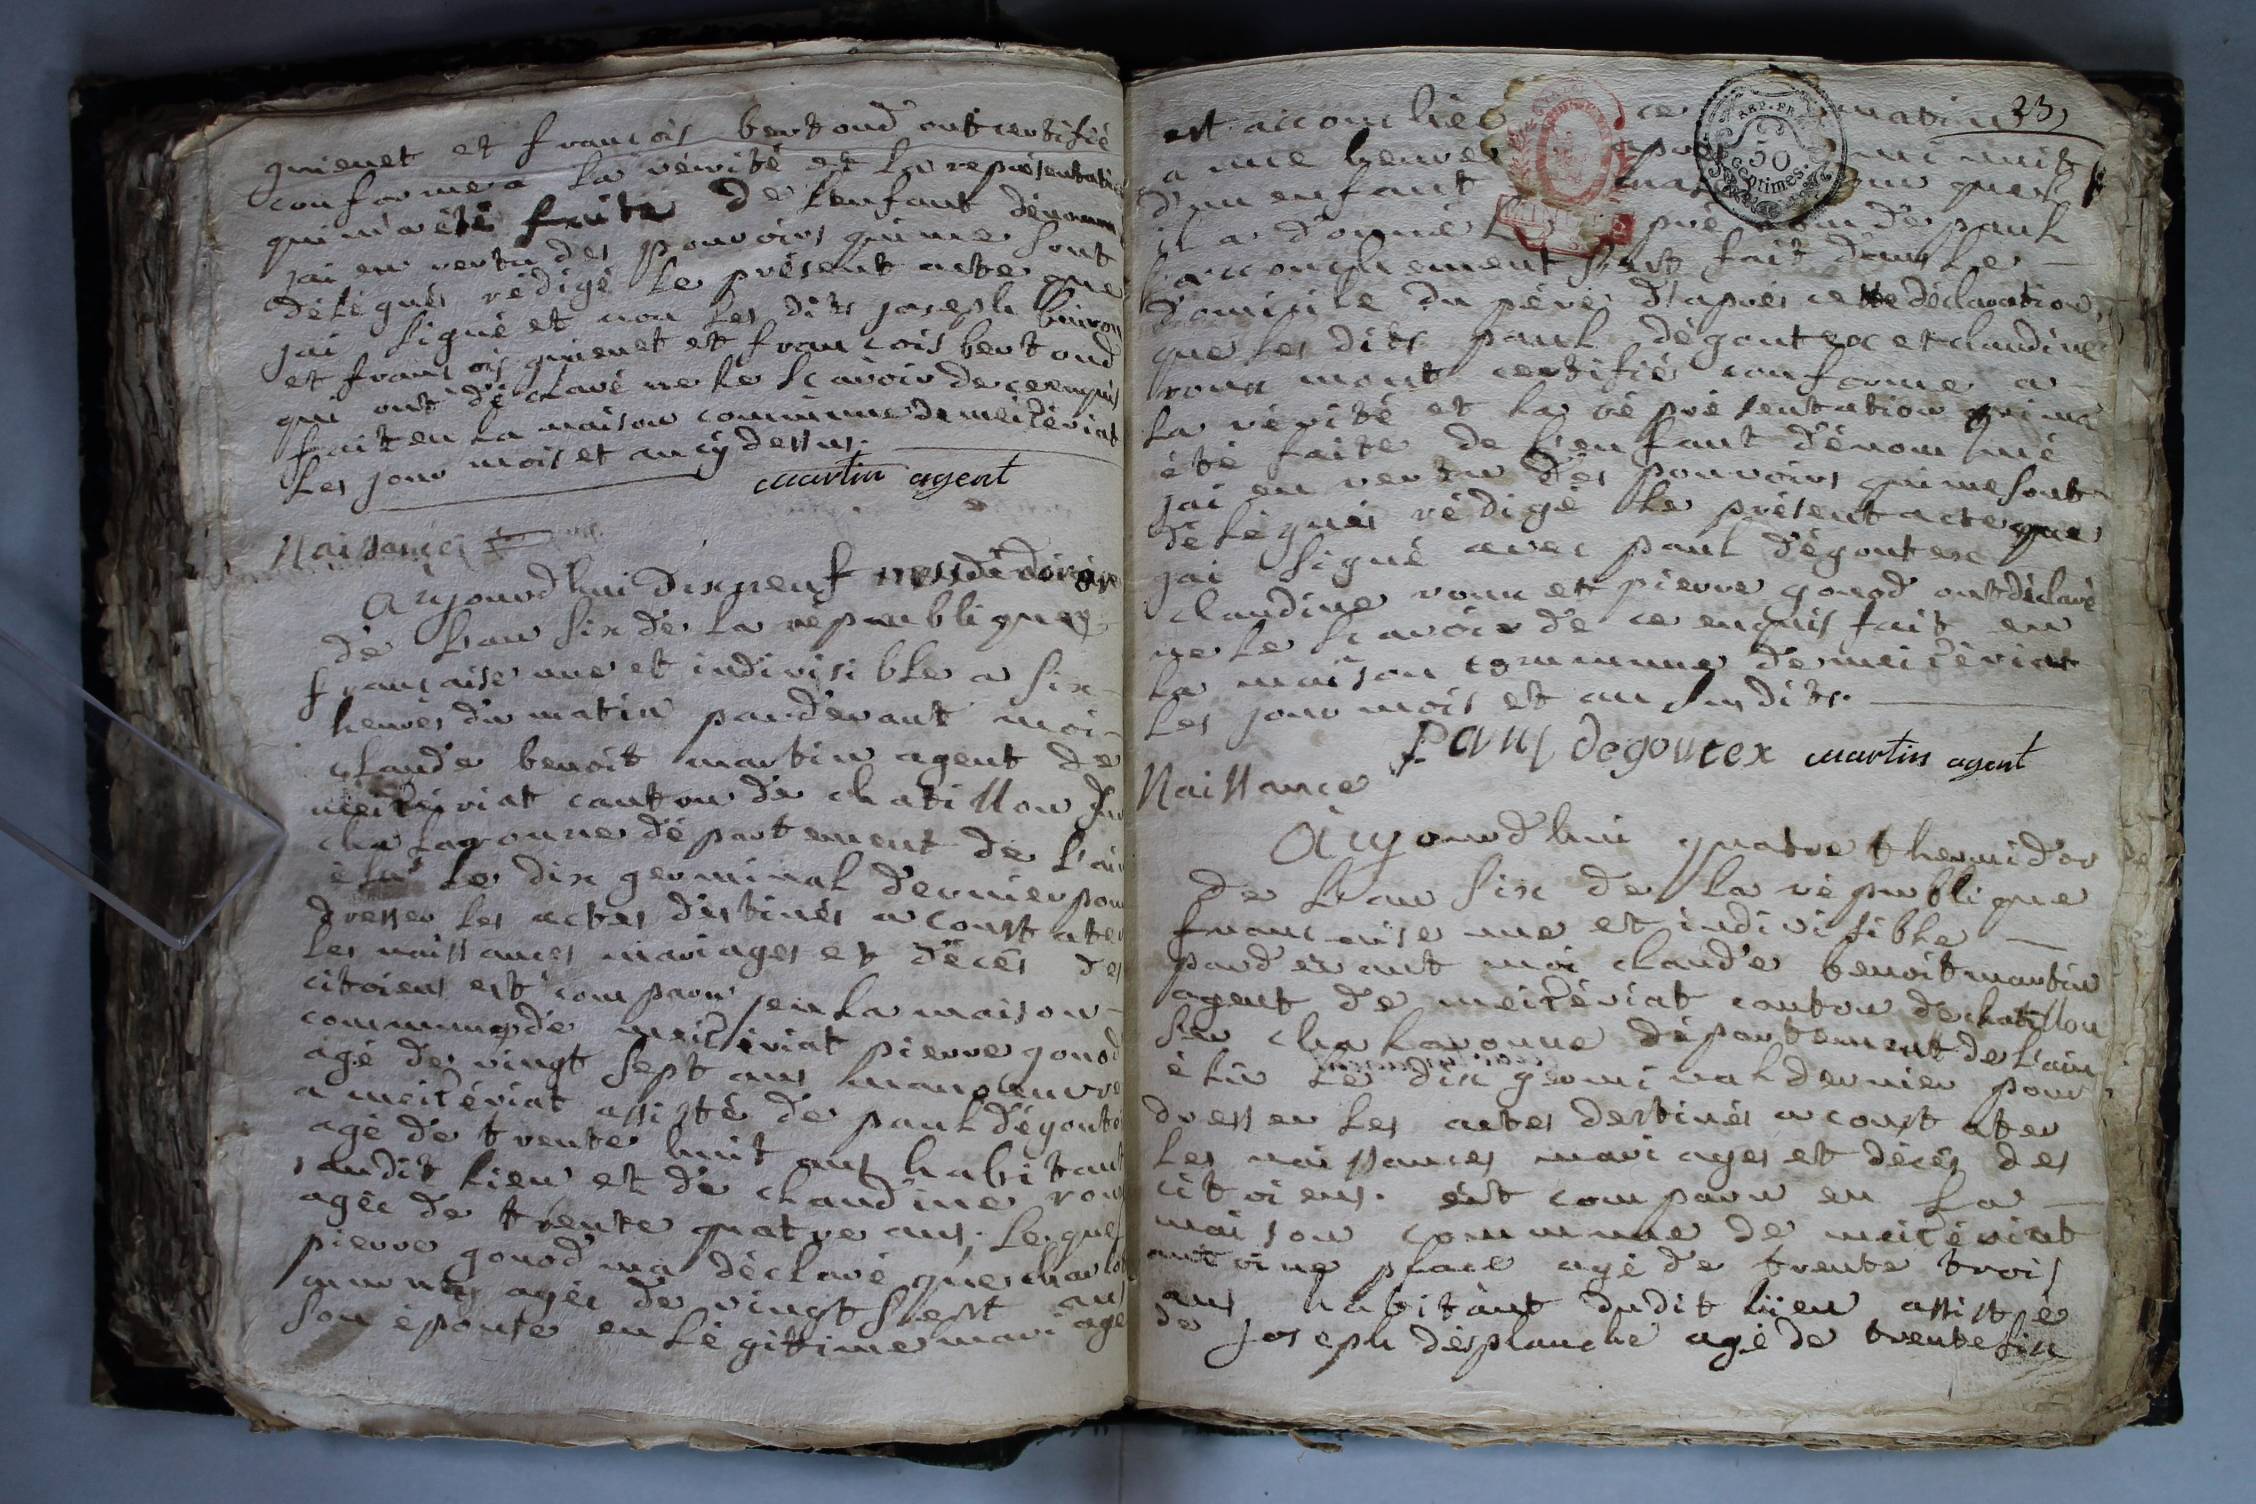 quienet et francois bertoud ont certifié
conforme a la vérité et la représentation
qui m'a été faite de l'enfant dénommé
jai en vertu des pouvoirs qui me sont
délégués rédigé le présent acte que
jai signé et non les dits joseph
et francois quienet et francois bertoud
qui ont déclaré ne le scavoir de ce enquis
fait en la maison commune de meitériat
les jour mois et an cy dessus.
martin agent
Naissances
Aujourdhui dix neuf messidor
de l'an six de la république
française une et indivisible a six
heures du matin pardevant moi
claude benoit martin agent de
meitériat canton de chatillon sur
chalaronne département de l'ain
élu le dix germinal dernier pour
dresser les actes destinés a constater
les naissances mariages et décés des
citoiens est comparu en la maison
commune de meitériat pierre gonod
agé de vingt sept ans manoeuvre
a meitériat assisté de paul dégoutex
agé de trente huit ans habitant
audit lieu et de claudine roux
agée de trente quatre ans, lequel
pierre gonod ma déclaré que
agée de vingt sept ans
son épouse en légittime mariage
23
est accouchée ce matin
a une heure après minuit
d'un enfant quel
il a donné prénom de paul
l'accouchement fait dans le
domicile du père d'aprés cette déclaration
que les dits paul dégoutex et claudine
roux mont certifié conforme a
la vérité et la représentation qui ma
été faite de l'enfant dénommé
jai en vertu des pouvoirs qui me sont
délégués rédigé le présent acte que
jai signé avec paul dégoutex
claudine roux et pierre gonod ont déclaré
ne le scavoir de ce enquis fait en
la maison commune de meitériat
les jour mois et an susdits.
Paul degoutex martin agent
Naissance
Aujourd'hui quatre thermidor
de l'an six de la république
française une et indivisible
pardevant moi claude benoit martin
agent de meitériat canton de chatillon
sur chalaronne département de l'ain
élu le dix germinal dernier pour
dresser les actes destinés a constater
les naissances mariages et décés des
citoiens. est comparu en la
maison commune de meitériat
place agé de trente trois
ans habitant dudit lieu assisté
de joseph desplanche agé de trente six
REP. FR.
50
centimes